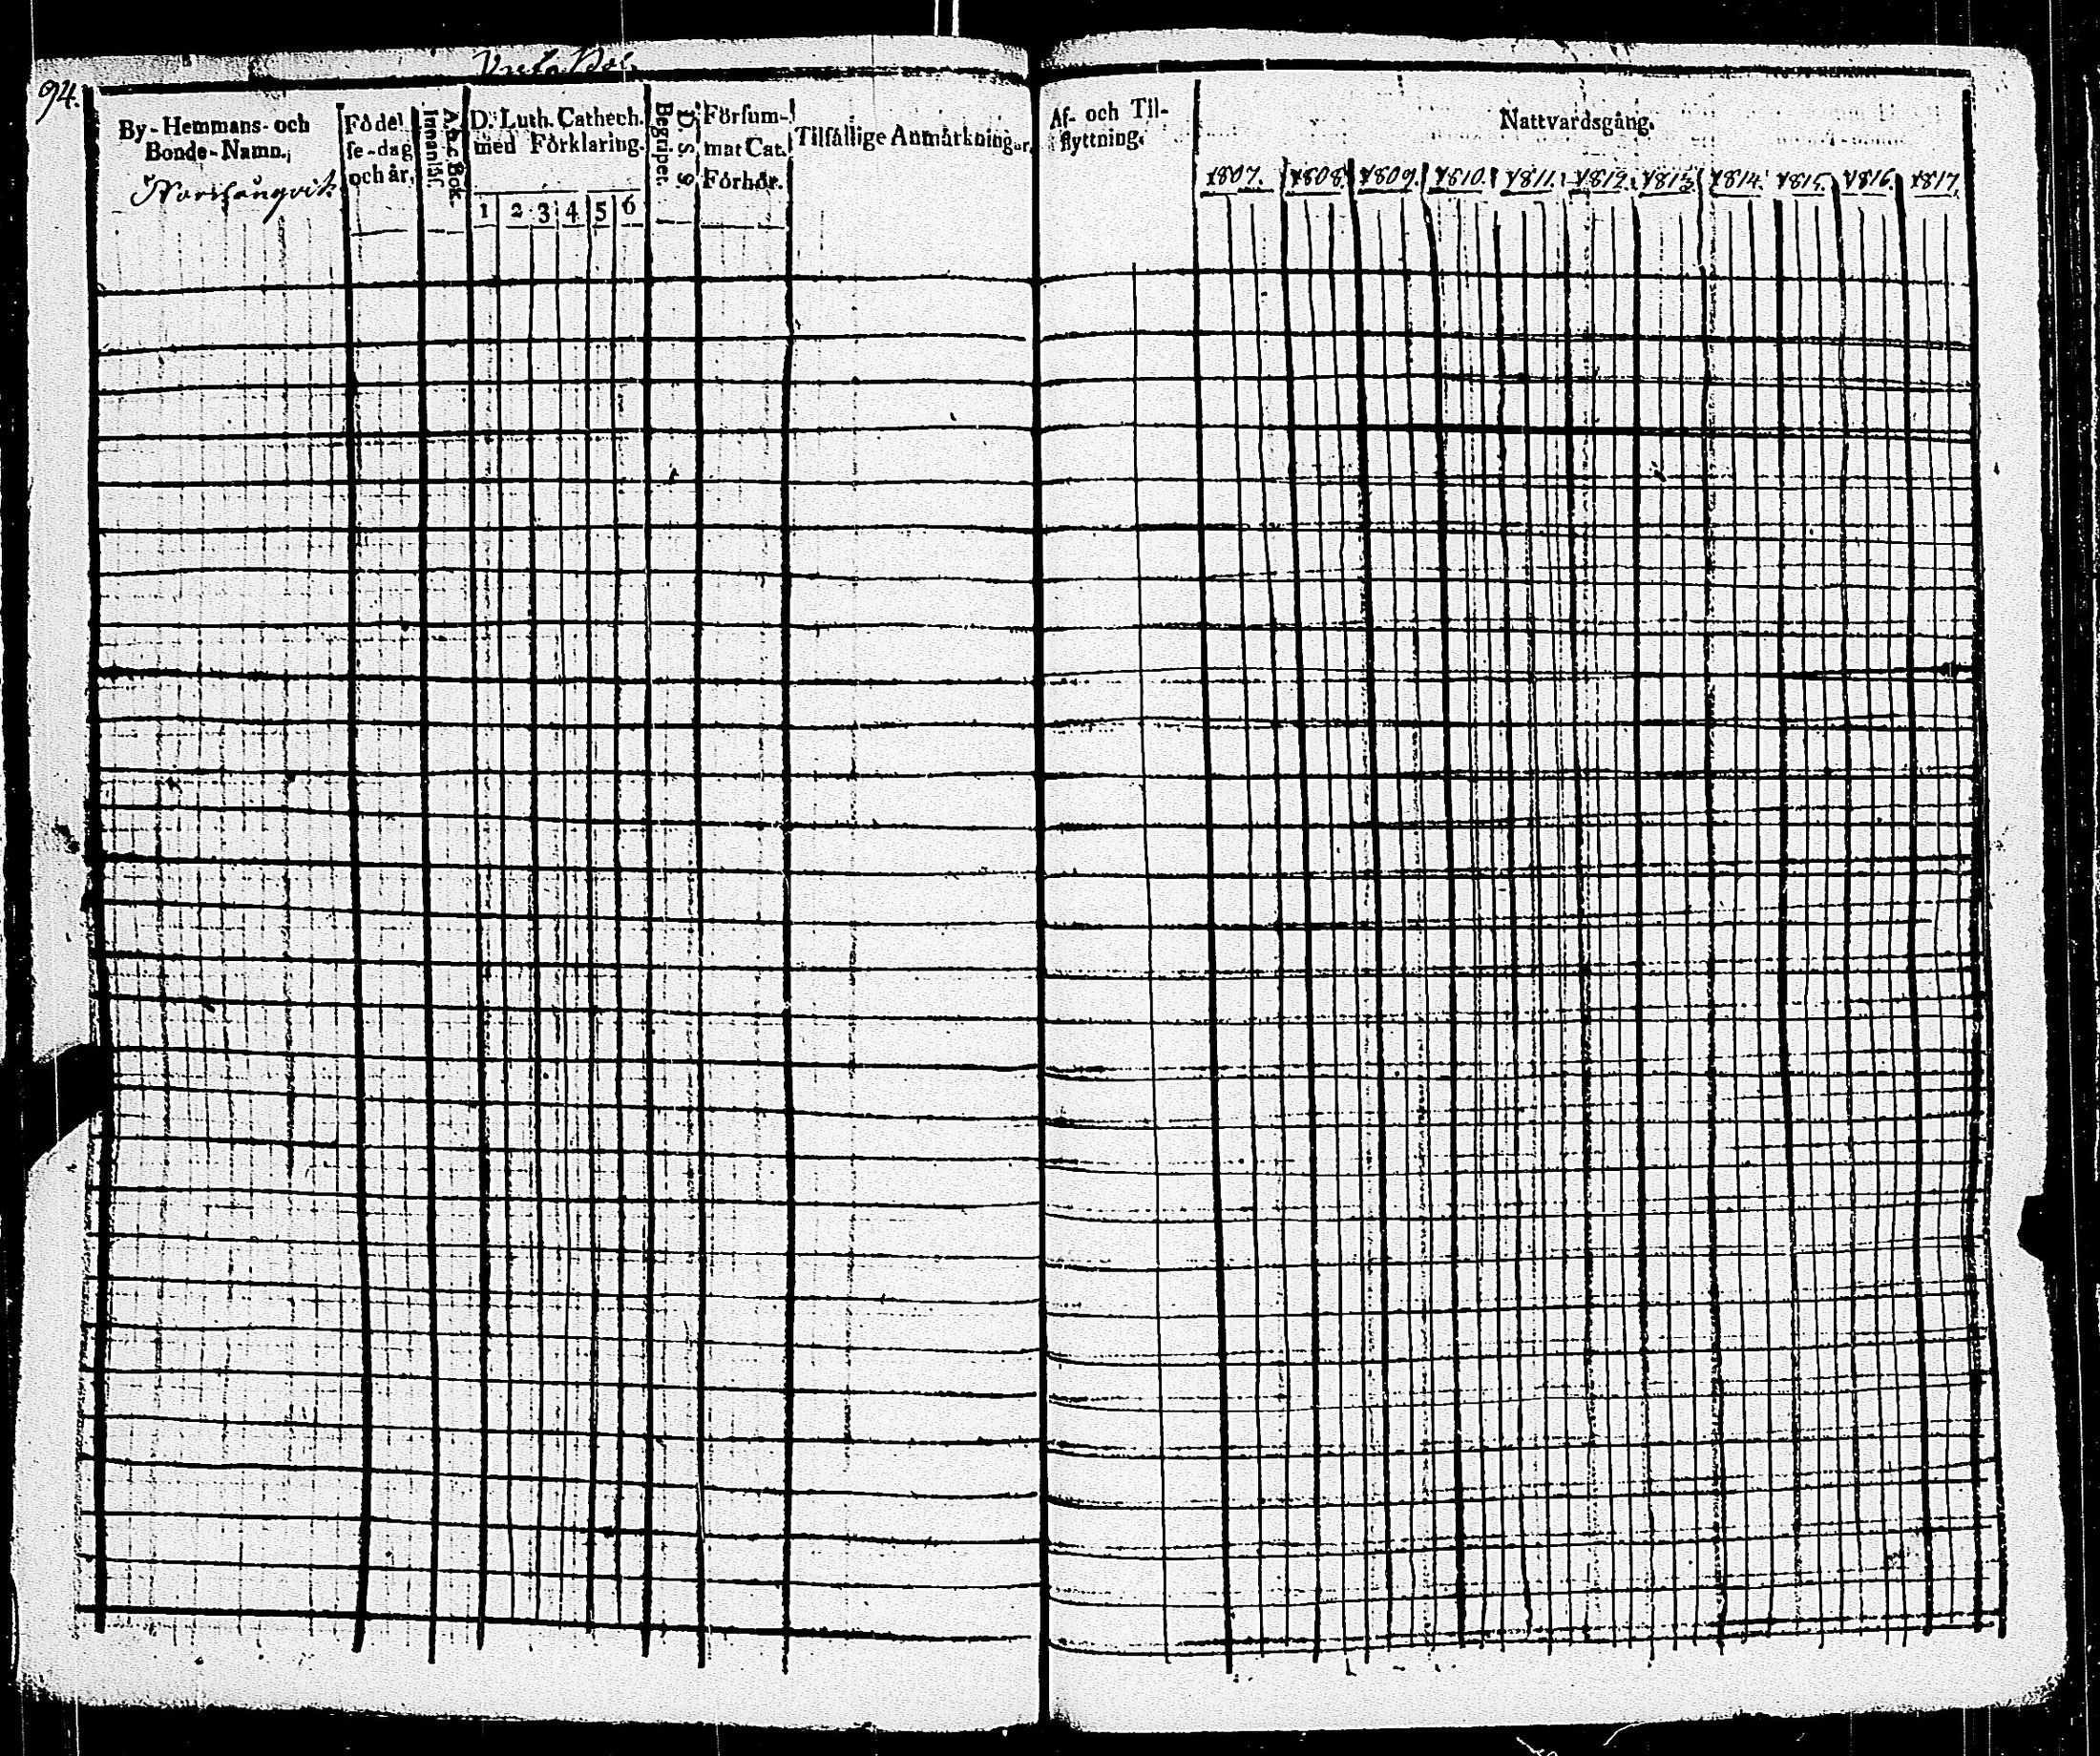 94.
By-Hemmans- och
Bonde-Namn.
Födel
se-dag
och år.
A.b.c Bok.
Innanläs.
D:r Luth. Cathech.
med Förklaring.
1 2 3 4 5 6
D. S. S.
Begriper.
Försum-
mat Cat.
Förhör.
Tilfällige Anmärkningar
Af- och Til-
flyttning.
Nattvardsgång.
1807. 1808. 1809. 1810. 1811. 1812. 1813. 1814. 1815. 1816. 1817.